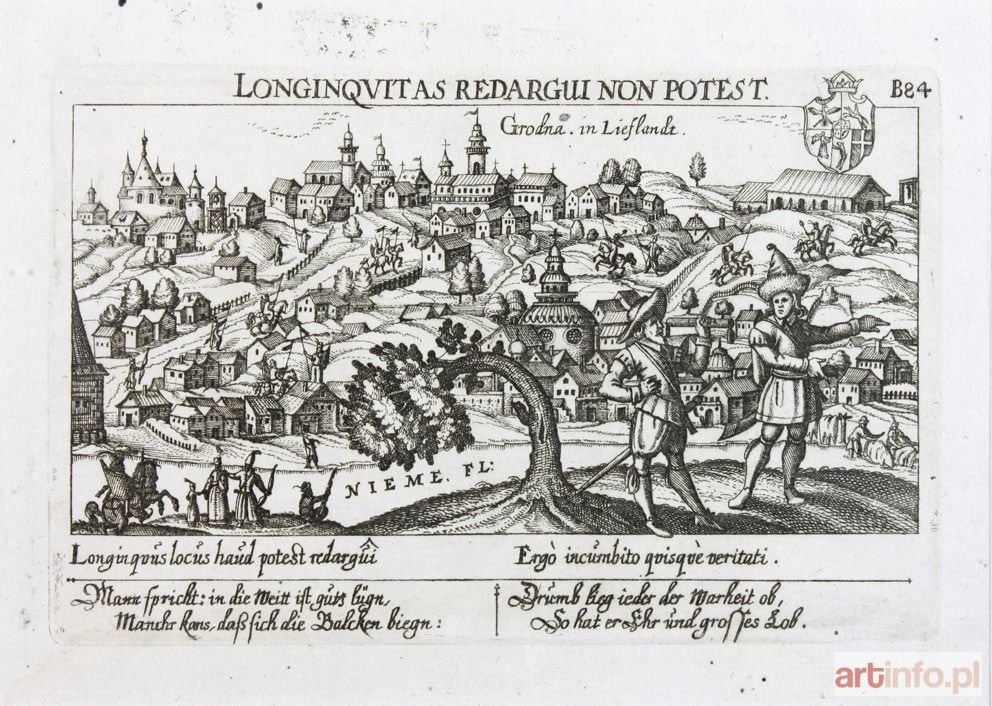 LONGINQVITAS REDARGUI NON POTEST.
B84
Grodna. in Lieflandt.
NIEME. FL:
Longinqvus locus haud potest redargui
Ergò incumbito qvisqvè veritati.
Mann spricht: in die Weitt ist guts lügn,
Drumb lieg ieder der Warheit ob,
Mancher kans, daß sich die Balcken biegn:
So hat er Ehr und grosses Lob.
artinfo.pl